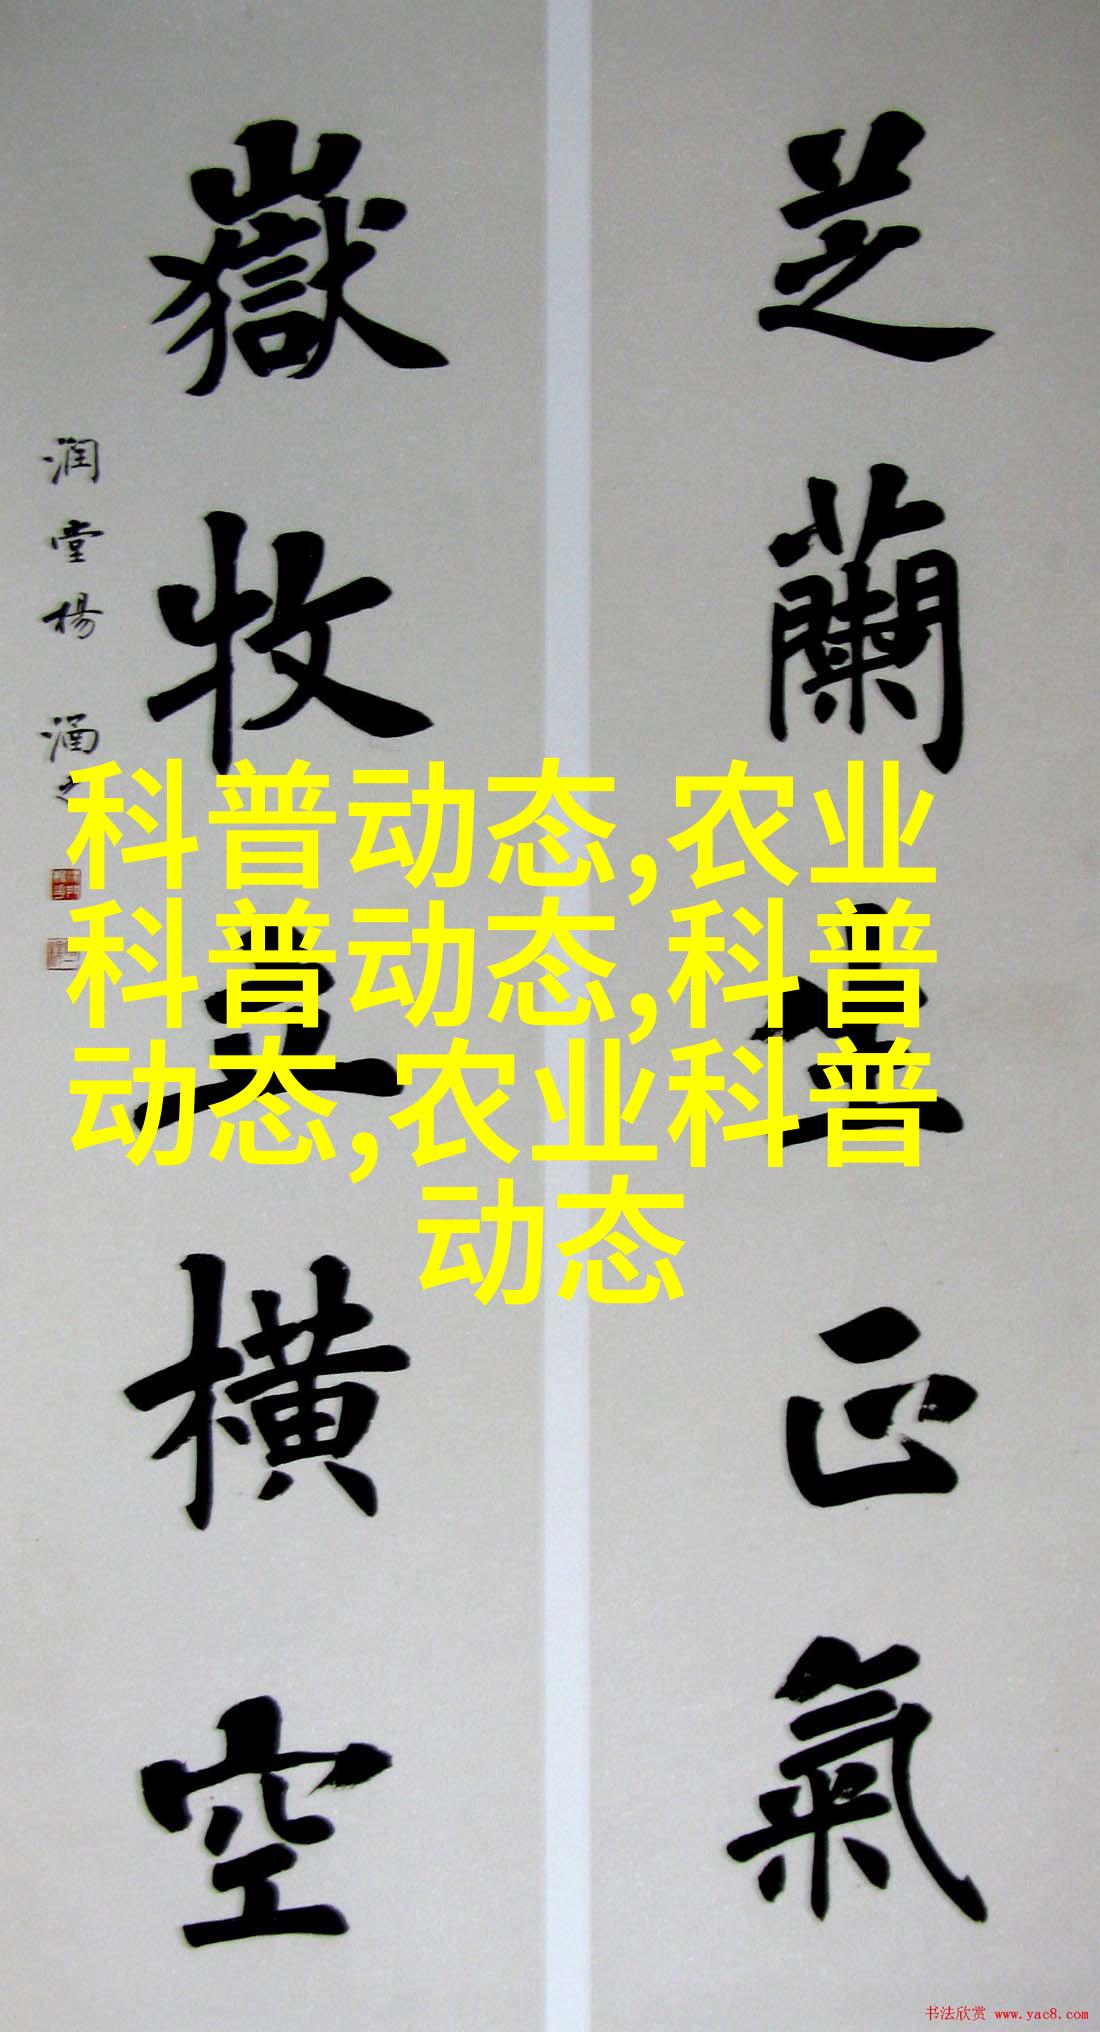 芝蘭生正氣
嶽牧
橫空
润堂楊涌
科普动态,农业
科普动态,科普
动态,农业科普
动态
书法欣赏 www.yac8.com